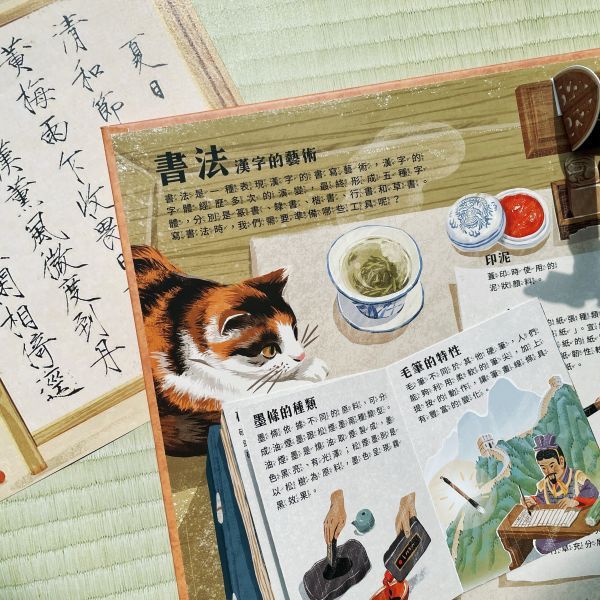 夏日
清和節
黃梅雨
收畏
薰風微度到丹
相倚
書法 漢字的藝術
書法是一種表現漢字的書寫藝術，漢字的
字體經歷多次的演變，最終形成五種字
體，分別是篆書、隸書、楷書、行書和草書。
寫書法時，我們需要準備哪些工具呢？
印泥
蓋印時使用的
泥狀顏料。
紙張種類
毛筆的特性
毛筆不同於其他硬筆，人們
能夠利用柔軟的筆尖，加上
提按的動作，讓筆畫線條具
有豐富的變化。
墨條的種類
墨條依據不同的原料，可分
成油煙墨跟松煙墨兩種類型。
油煙墨是燒油取煙製成，墨
色黑亮、有光澤；松煙墨則是
以松樹為原料，墨色呈現霧
黑效果。